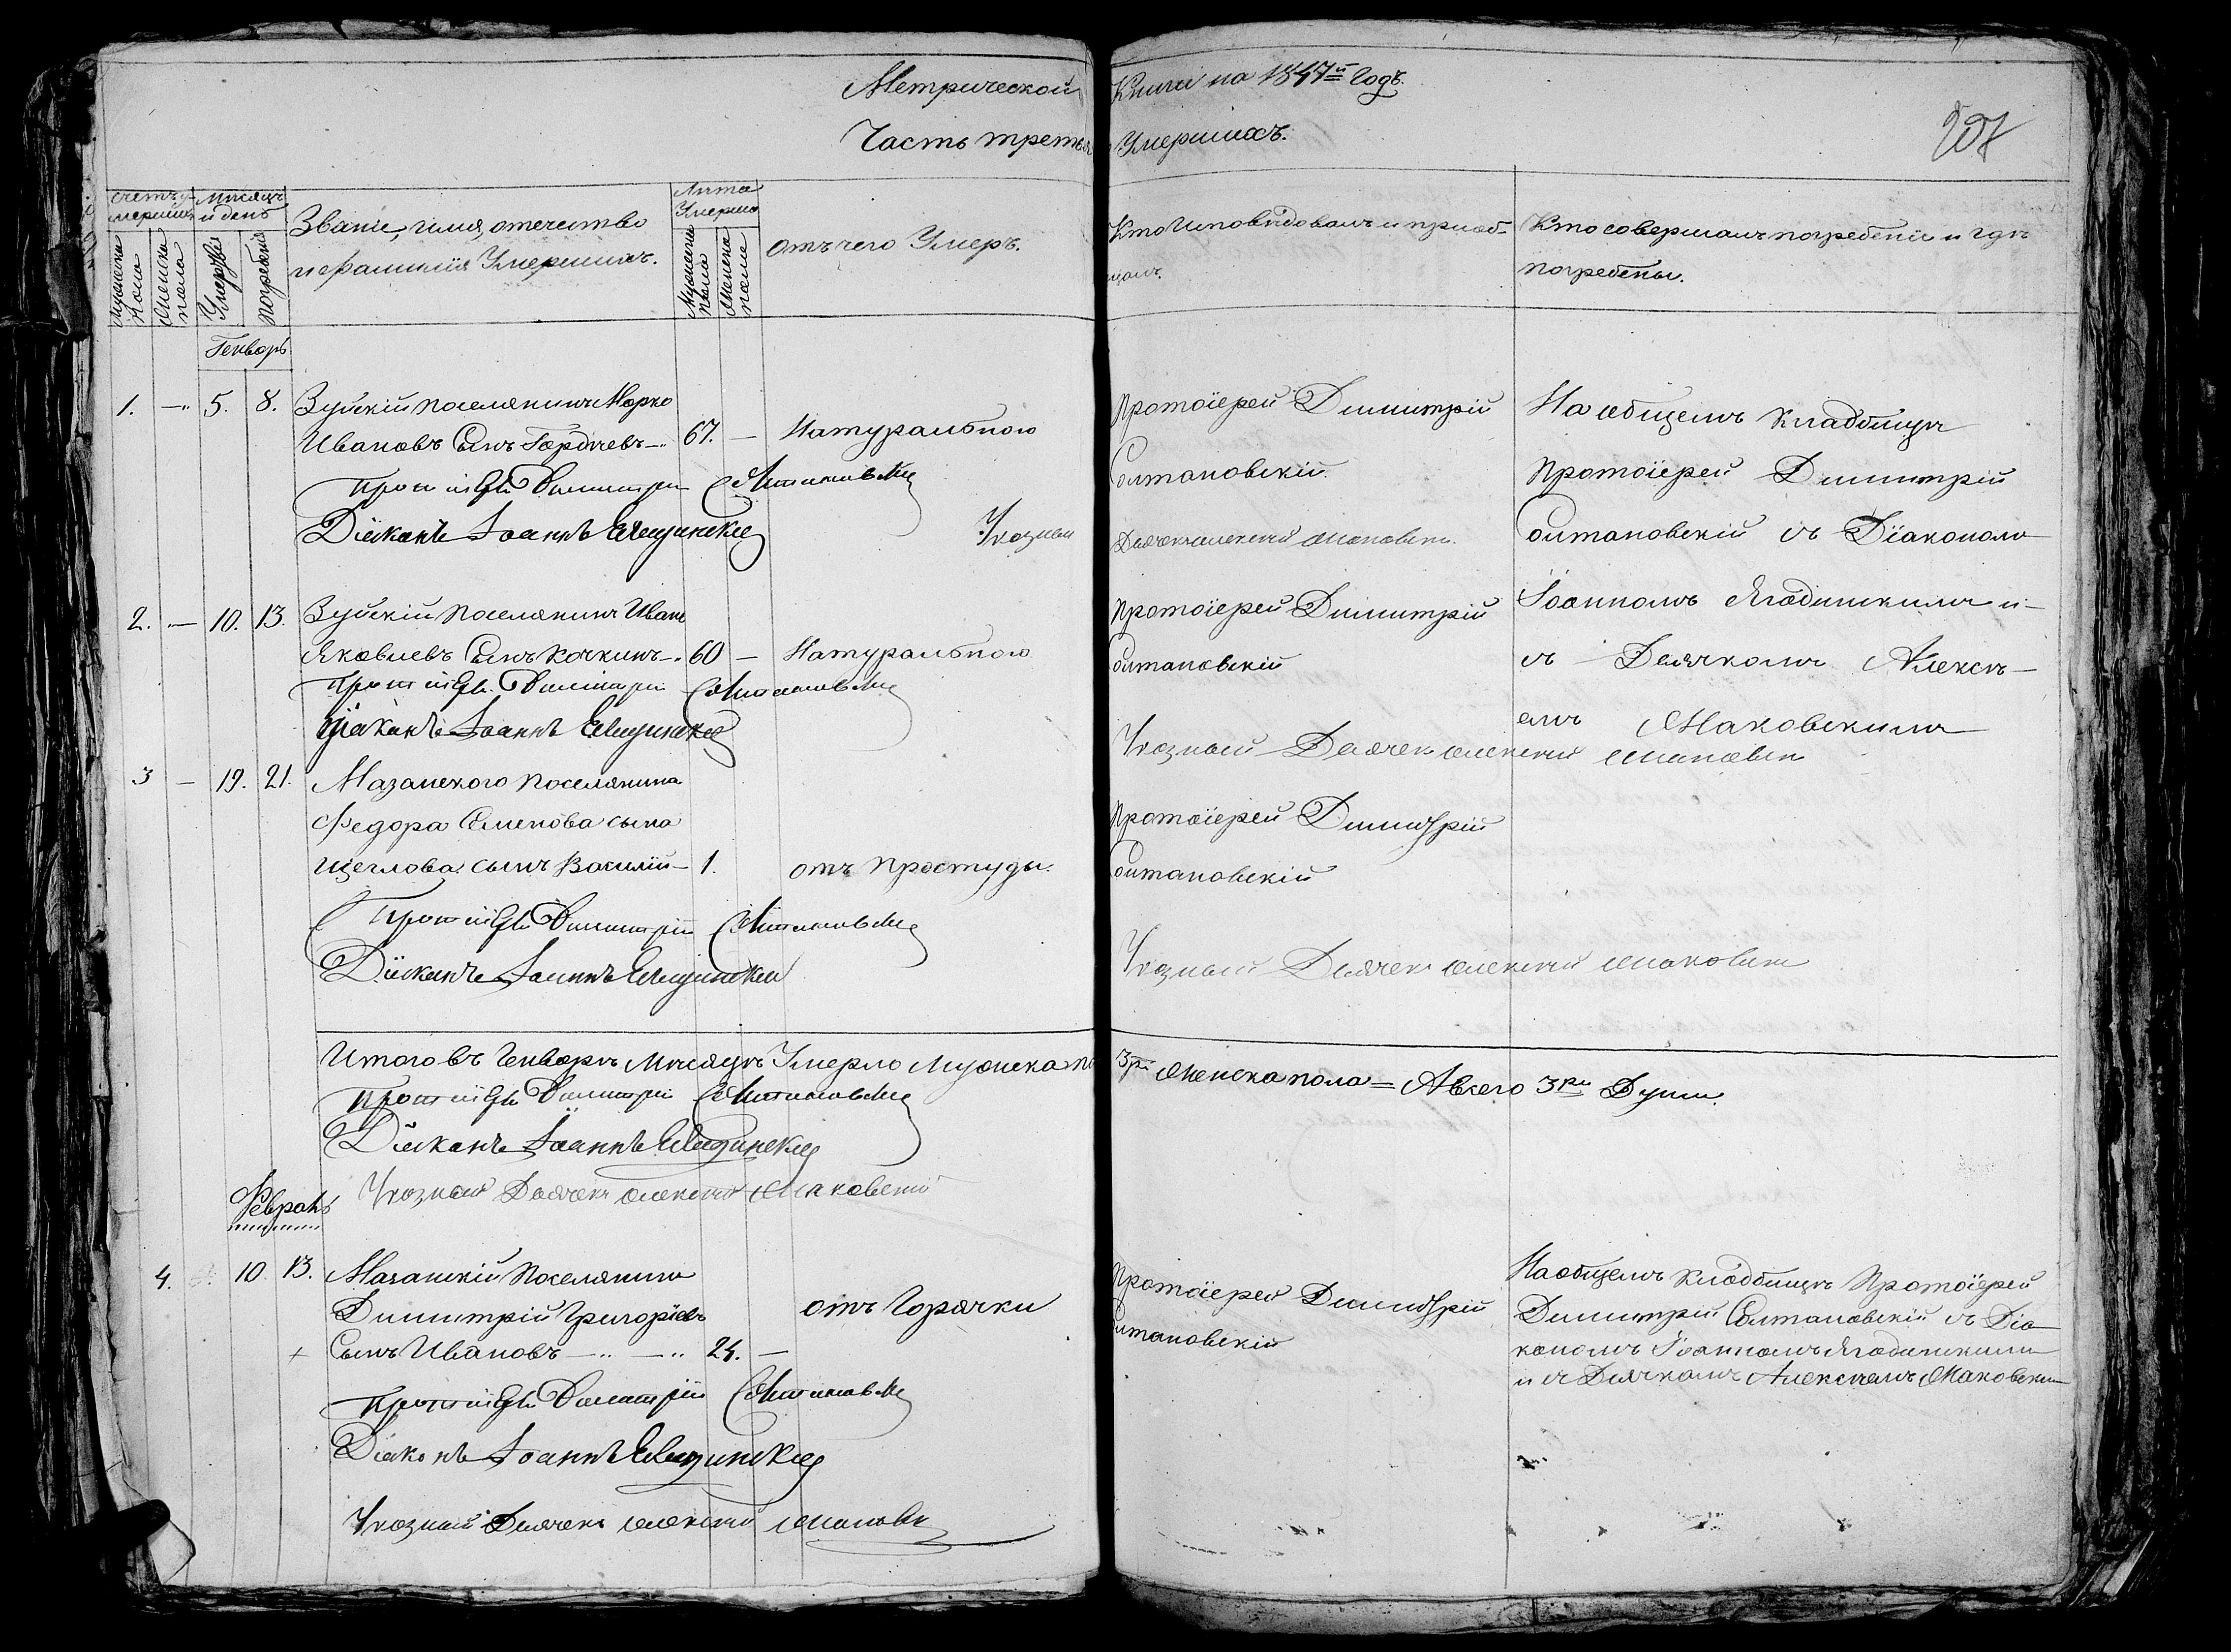 Метрической Книги на 1847й Годъ.
Часть третья Умершихъ.
207
Счетъ умершихъ
Мужеска пола
Женска пола
Мѣсяцъ и день
Умертвія
Погребенія
Званіе, имя, отечество
и фамилія Умершихъ.
Лѣта Умерша
Мужеска пола
Женска пола
Отъ чего Умеръ.
Кто Исповѣдовалъ и приоб-
щалъ.
Кто совершалъ погребеніе и гдѣ
погребены.
Генварь
1. — 5. 8. Зуйскій поселянинъ Марко
Ивановъ Сынъ Гордѣевъ — 67. — Натуральною
Протоіерей Димитрій Солтановскій
Діаконъ Іоаннъ Ягодинскій
Протоіерей Димитрій
Солтановскій.
Указный Дьячекъ Алексей Маковскій
На общемъ Кладбищѣ
Протоіерей Димитрій
Солтановскій съ Діакономъ
Іоанномъ Ягодинскимъ и
съ Дьячкомъ Алексѣ-
емъ Маковскимъ
2. — 10. 13. Зуйскій Поселянинъ Иванъ
Яковлевъ Сынъ Кочкинъ — 60 — Натуральною
Протоіерей Димитрій Солтановскій
Діаконъ Іоаннъ Ягодинскій
Протоіерей Димитрій
Солтановскій
Указный Дьячек Алексей Маковскій
3 — 19. 21. Мазанскаго Поселянина
Федора Семенова сына
Щеглова сынъ Василій — 1. отъ Простуды.
Протоіерей Димитрій Солтановскій
Діаконъ Іоаннъ Ягодинскій
Протоіерей Димитрій
Солтановскій
Указный Дьячек Алексей Маковскій
Итого въ Генварѣ Мѣсяцѣ Умерло Мужеска по 3ри Женска пола = А всего 3ри Души.
Протоіерей Димитрій Солтановскій
Діаконъ Іоаннъ Ягодинскій
Указный Дьячек Алексей Маковскій
Февраль
4. 10. 13. Мазанскій Поселянинъ
Димитрій Григоріевъ отъ Горячки
Сынъ Ивановъ — 24. —
Протоіерей Димитрій Солтановскій
Діаконъ Іоаннъ Ягодинскій
Указный Дьячекъ Алексей Маковск
Протоіерей Димитрій
Солтановскій
На общемъ Кладбищѣ Протоіерей
Димитрій Солтановскій съ Діа
кономъ Іоанномъ Ягодинскимъ
и съ Дьячкомъ Алексѣемъ Маковским